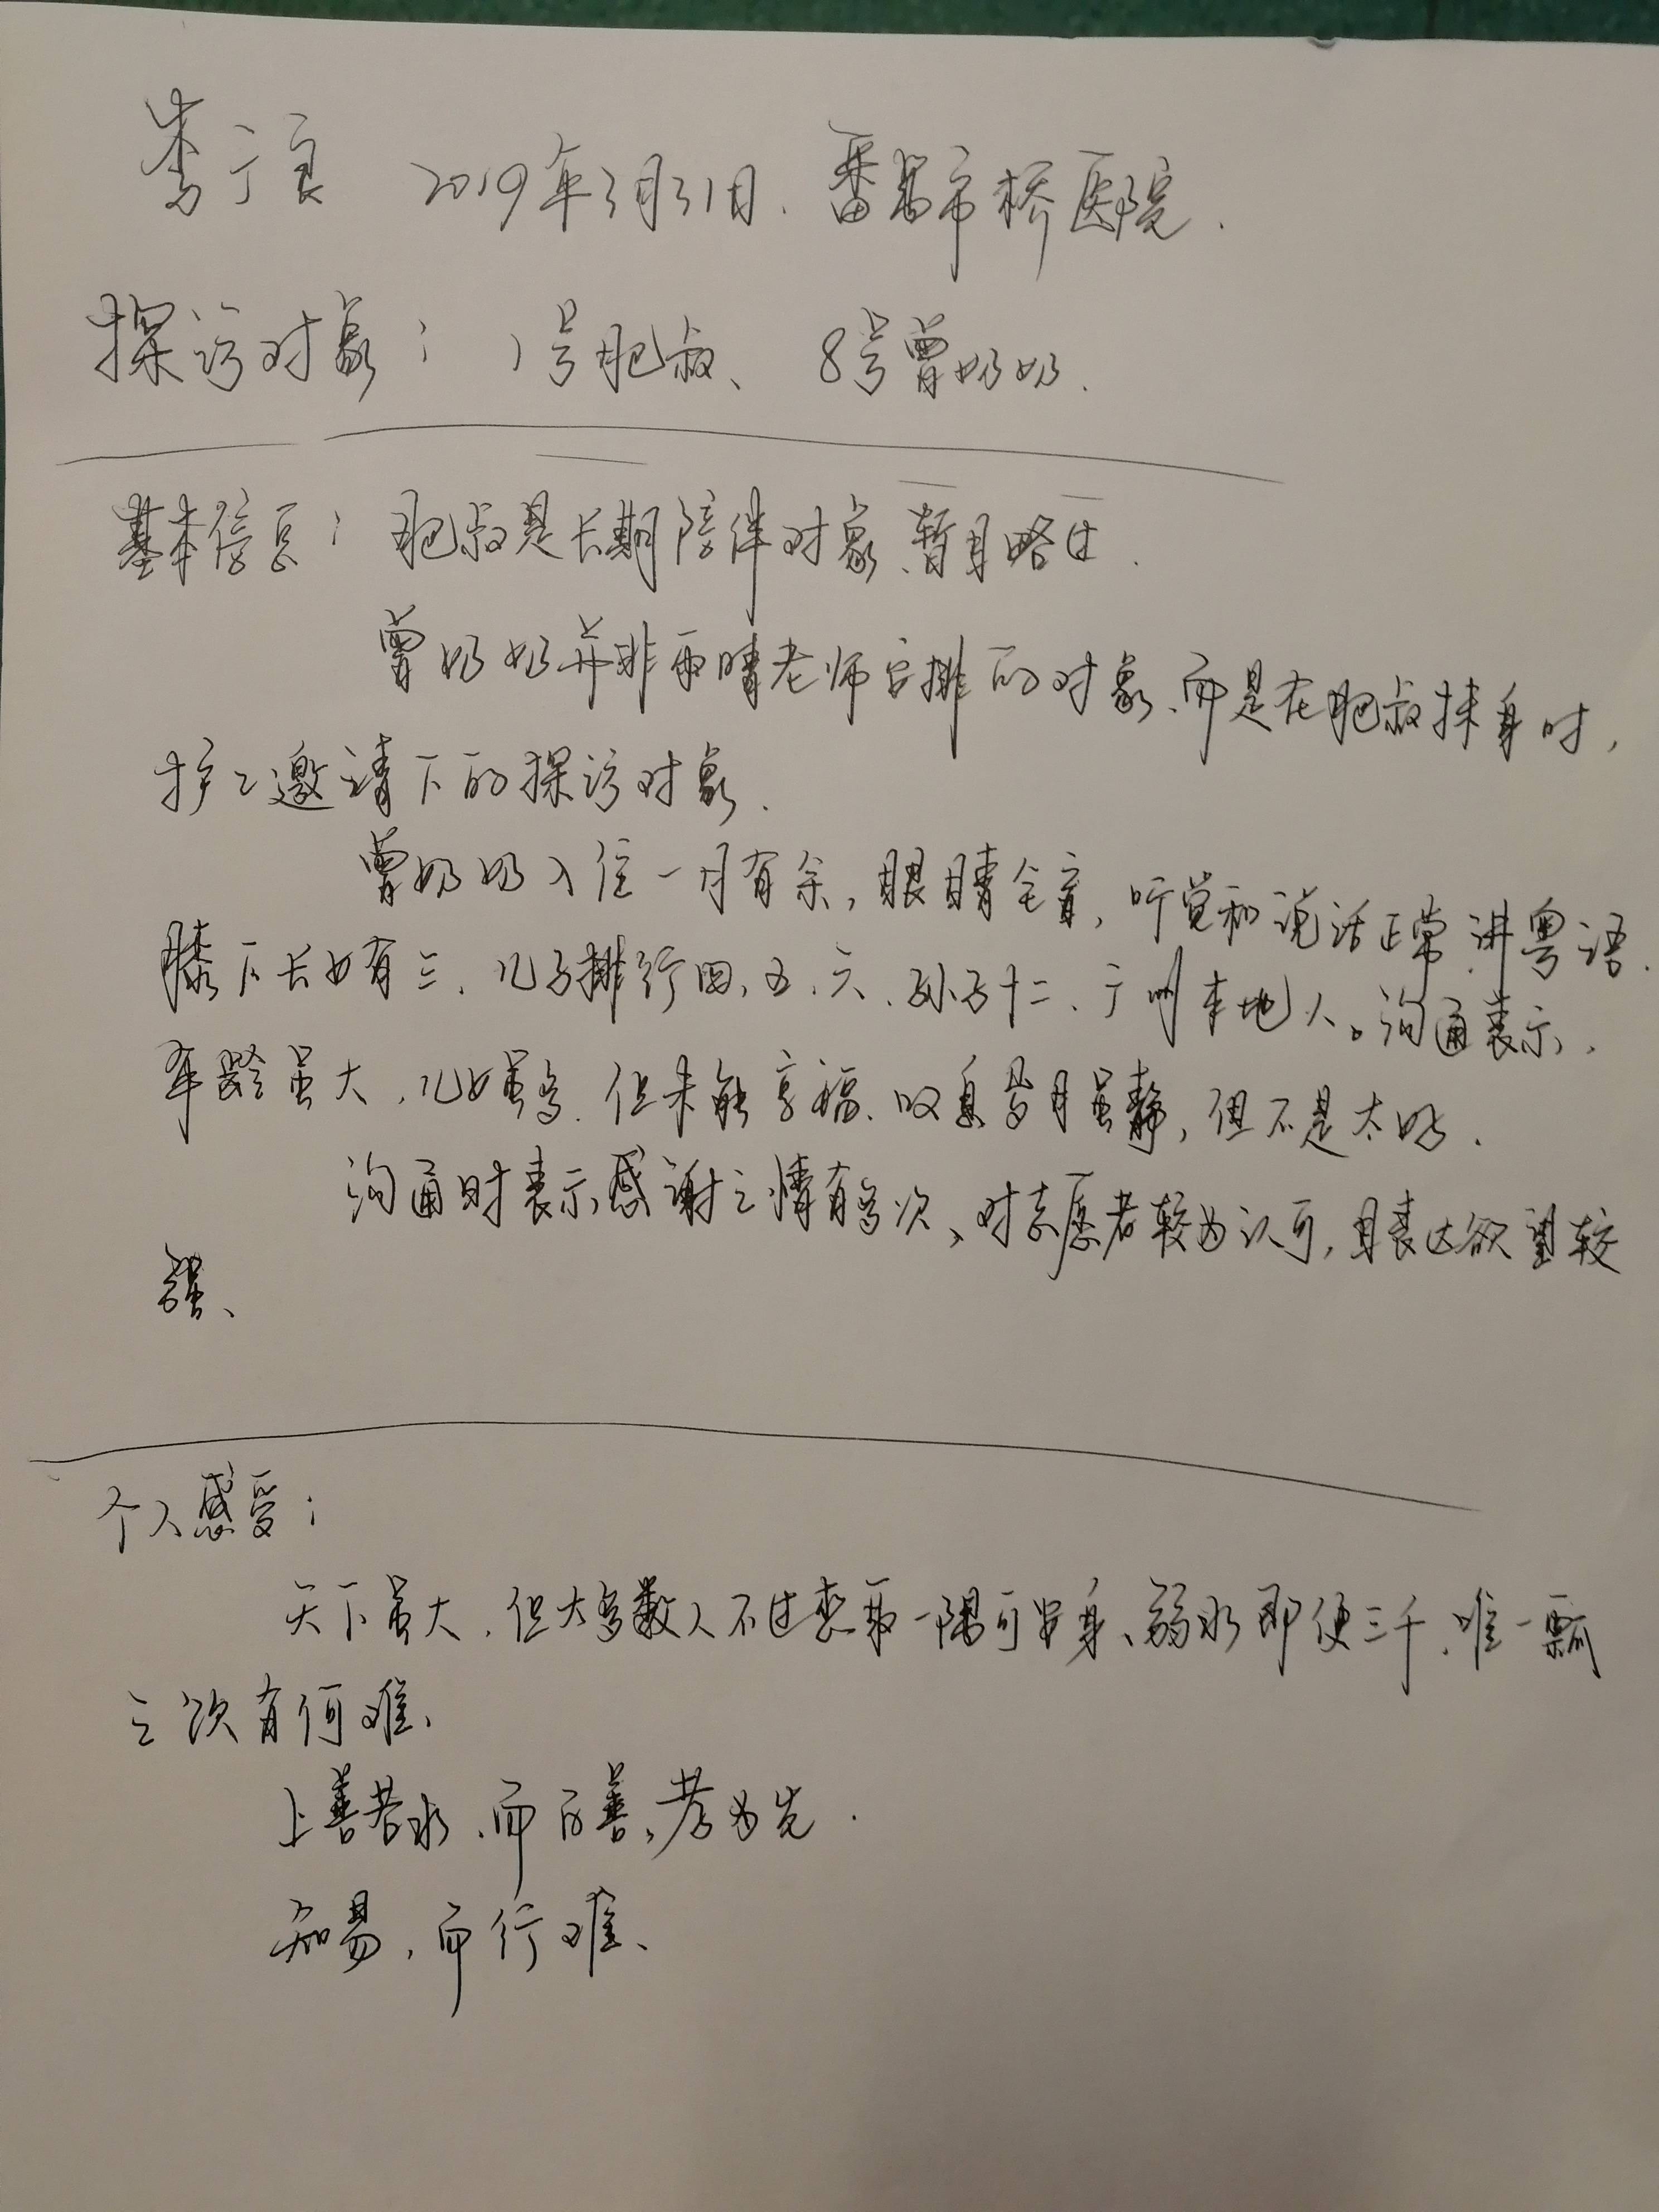 李广良 2019年3月31日、番禺市桥医院.
探访对象: 1号肥叔、 8号曾奶奶.
基本信息: 肥叔是长期陪伴对象、暂且略过.
曾奶奶并非雨晴老师安排的对象、而是在肥叔抹身时,
护工邀请下的探访对象.
曾奶奶入住一月有余, 眼睛全盲, 听觉和说话正常.讲粤语.
膝下长女有三、儿子排行四、五、六、孙子十二、广州本地人。沟通表示,
年龄虽大,儿女虽多.但未能享福、叹息岁月虽静,但不是太好.
沟通时表示感谢之情有多次、对志愿者较为认可,且表达欲望较
强、
个人感受:
天下虽大,但大多数人不过 一隅可安身、弱水即便三千、唯一瓢
之饮有何难、
上善若水、而百善、孝为先.
知易,而行难、